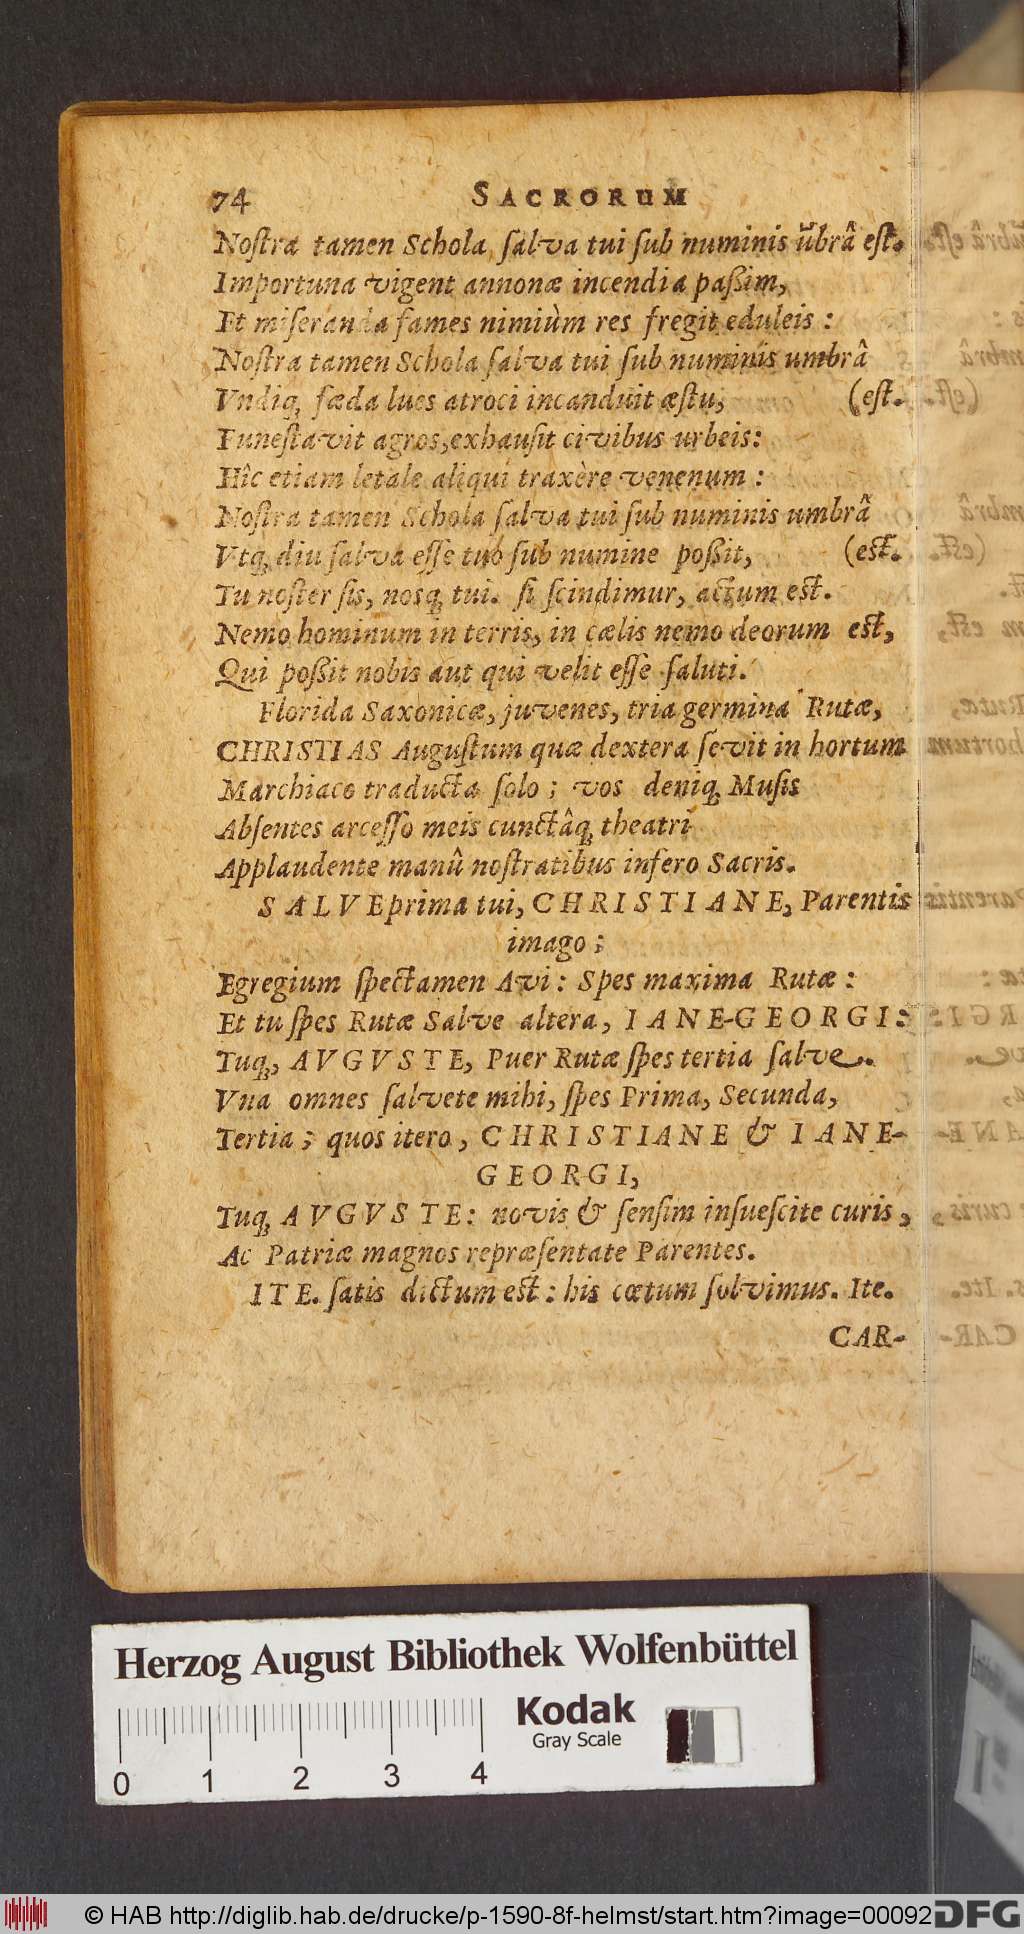 74 SACRORUM
Noſtra tamen Schola ſalva tui ſub numinis ũbrâ eſt.
Importuna vigent annonæ incendia paßim,
Et miſeranda fames nimiùm res fregit eduleis :
Noſtra tamen Schola ſalva tui ſub numinis umbrâ
Vndiq; fæda lues atroci incanduit æſtu, (eſt.
Funeſtavit agros, exhauſit civibus urbeis:
Hîc etiam letale aliqui traxère venenum :
Noſtra tamen Schola ſalva tui ſub numinis umbrâ
Vtq; diu ſalva eſſe tuo ſub numine poßit, (eſt.
Tu noſter ſis, nosq; tui. ſi ſcindimur, actum eſt.
Nemo hominum in terris, in cælis nemo deorum eſt,
Qui poßit nobis aut qui velit eſſe ſaluti.
Florida Saxonicæ, juvenes, tria germina Rutæ,
CHRISTIAS Auguſtum quæ dextera ſevit in hortum
Marchiaco traducta ſolo ; vos deniq; Muſis
Abſentes arceſſo meis cunctâq; theatri
Applaudente manû noſtratibus inſero Sacris.
SALVE prima tui, CHRISTIANE, Parentis
imago ;
Egregium ſpectamen Avi : Spes maxima Rutæ :
Et tu ſpes Rutæ Salve altera, IANE-GEORGI:
Tuq;, AVGVSTE, Puer Rutæ ſpes tertia ſalve.
Vna omnes ſalvete mihi, ſpes Prima, Secunda,
Tertia ; quos itero, CHRISTIANE & IANE-
GEORGI,
Tuq; AVGVSTE: novis & ſenſim inſueſcite curis,
Ac Patriæ magnos repræſentate Parentes.
ITE. ſatis dictum eſt : his cœtum ſolvimus. Ite.
CAR-
Herzog August Bibliothek Wolfenbüttel
Kodak
Gray Scale
0 1 2 3 4
© HAB http://diglib.hab.de/drucke/p-1590-8f-helmst/start.htm?image=00092
DFG